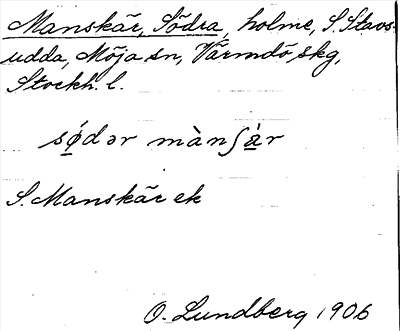 Manskär, Södra, holme, S. Stavs-
udda, Möja sn, Värmdö skg,
Stockh. l.
sǿdər mànʃàr
S. Manskär ek
O. Lundberg 1906